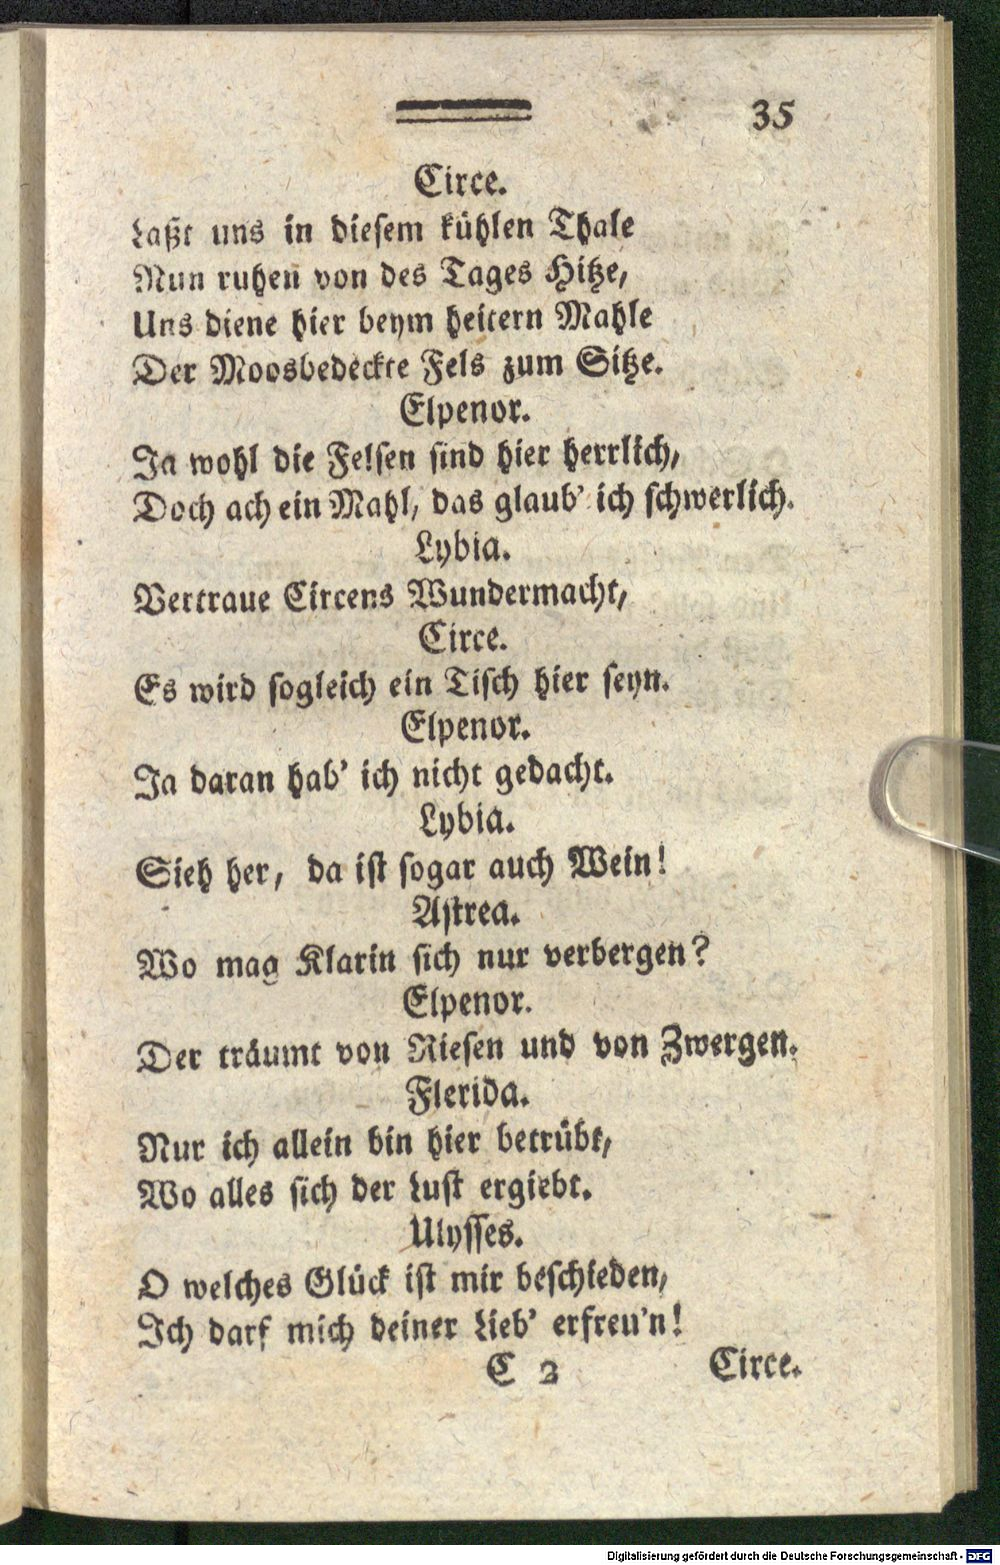 35
Circe.
Laßt uns in diesem kühlen Thale
Nun ruhen von des Tages Hitze,
Uns diene hier beym heitern Mahle
Der Moosbedeckte Fels zum Sitze.
Elpenor.
Ja wohl die Felsen sind hier herrlich,
Doch ach ein Mahl, das glaub' ich schwerlich.
Lybia.
Vertraue Circens Wundermacht,
Circe.
Es wird sogleich ein Tisch hier seyn.
Elpenor.
Ja daran hab' ich nicht gedacht.
Lybia.
Sieh her, da ist sogar auch Wein!
Astrea.
Wo mag Klarin sich nur verbergen?
Elpenor.
Der träumt von Riesen und von Zwergen.
Flerida.
Nur ich allein bin hier betrübt,
Wo alles sich der Lust ergiebt.
Ulysses.
O welches Glück ist mir beschieden,
Ich darf mich deiner Lieb' erfreu'n!
C 2 Circe.
Digitalisierung gefördert durch die Deutsche Forschungsgemeinschaft - DFG